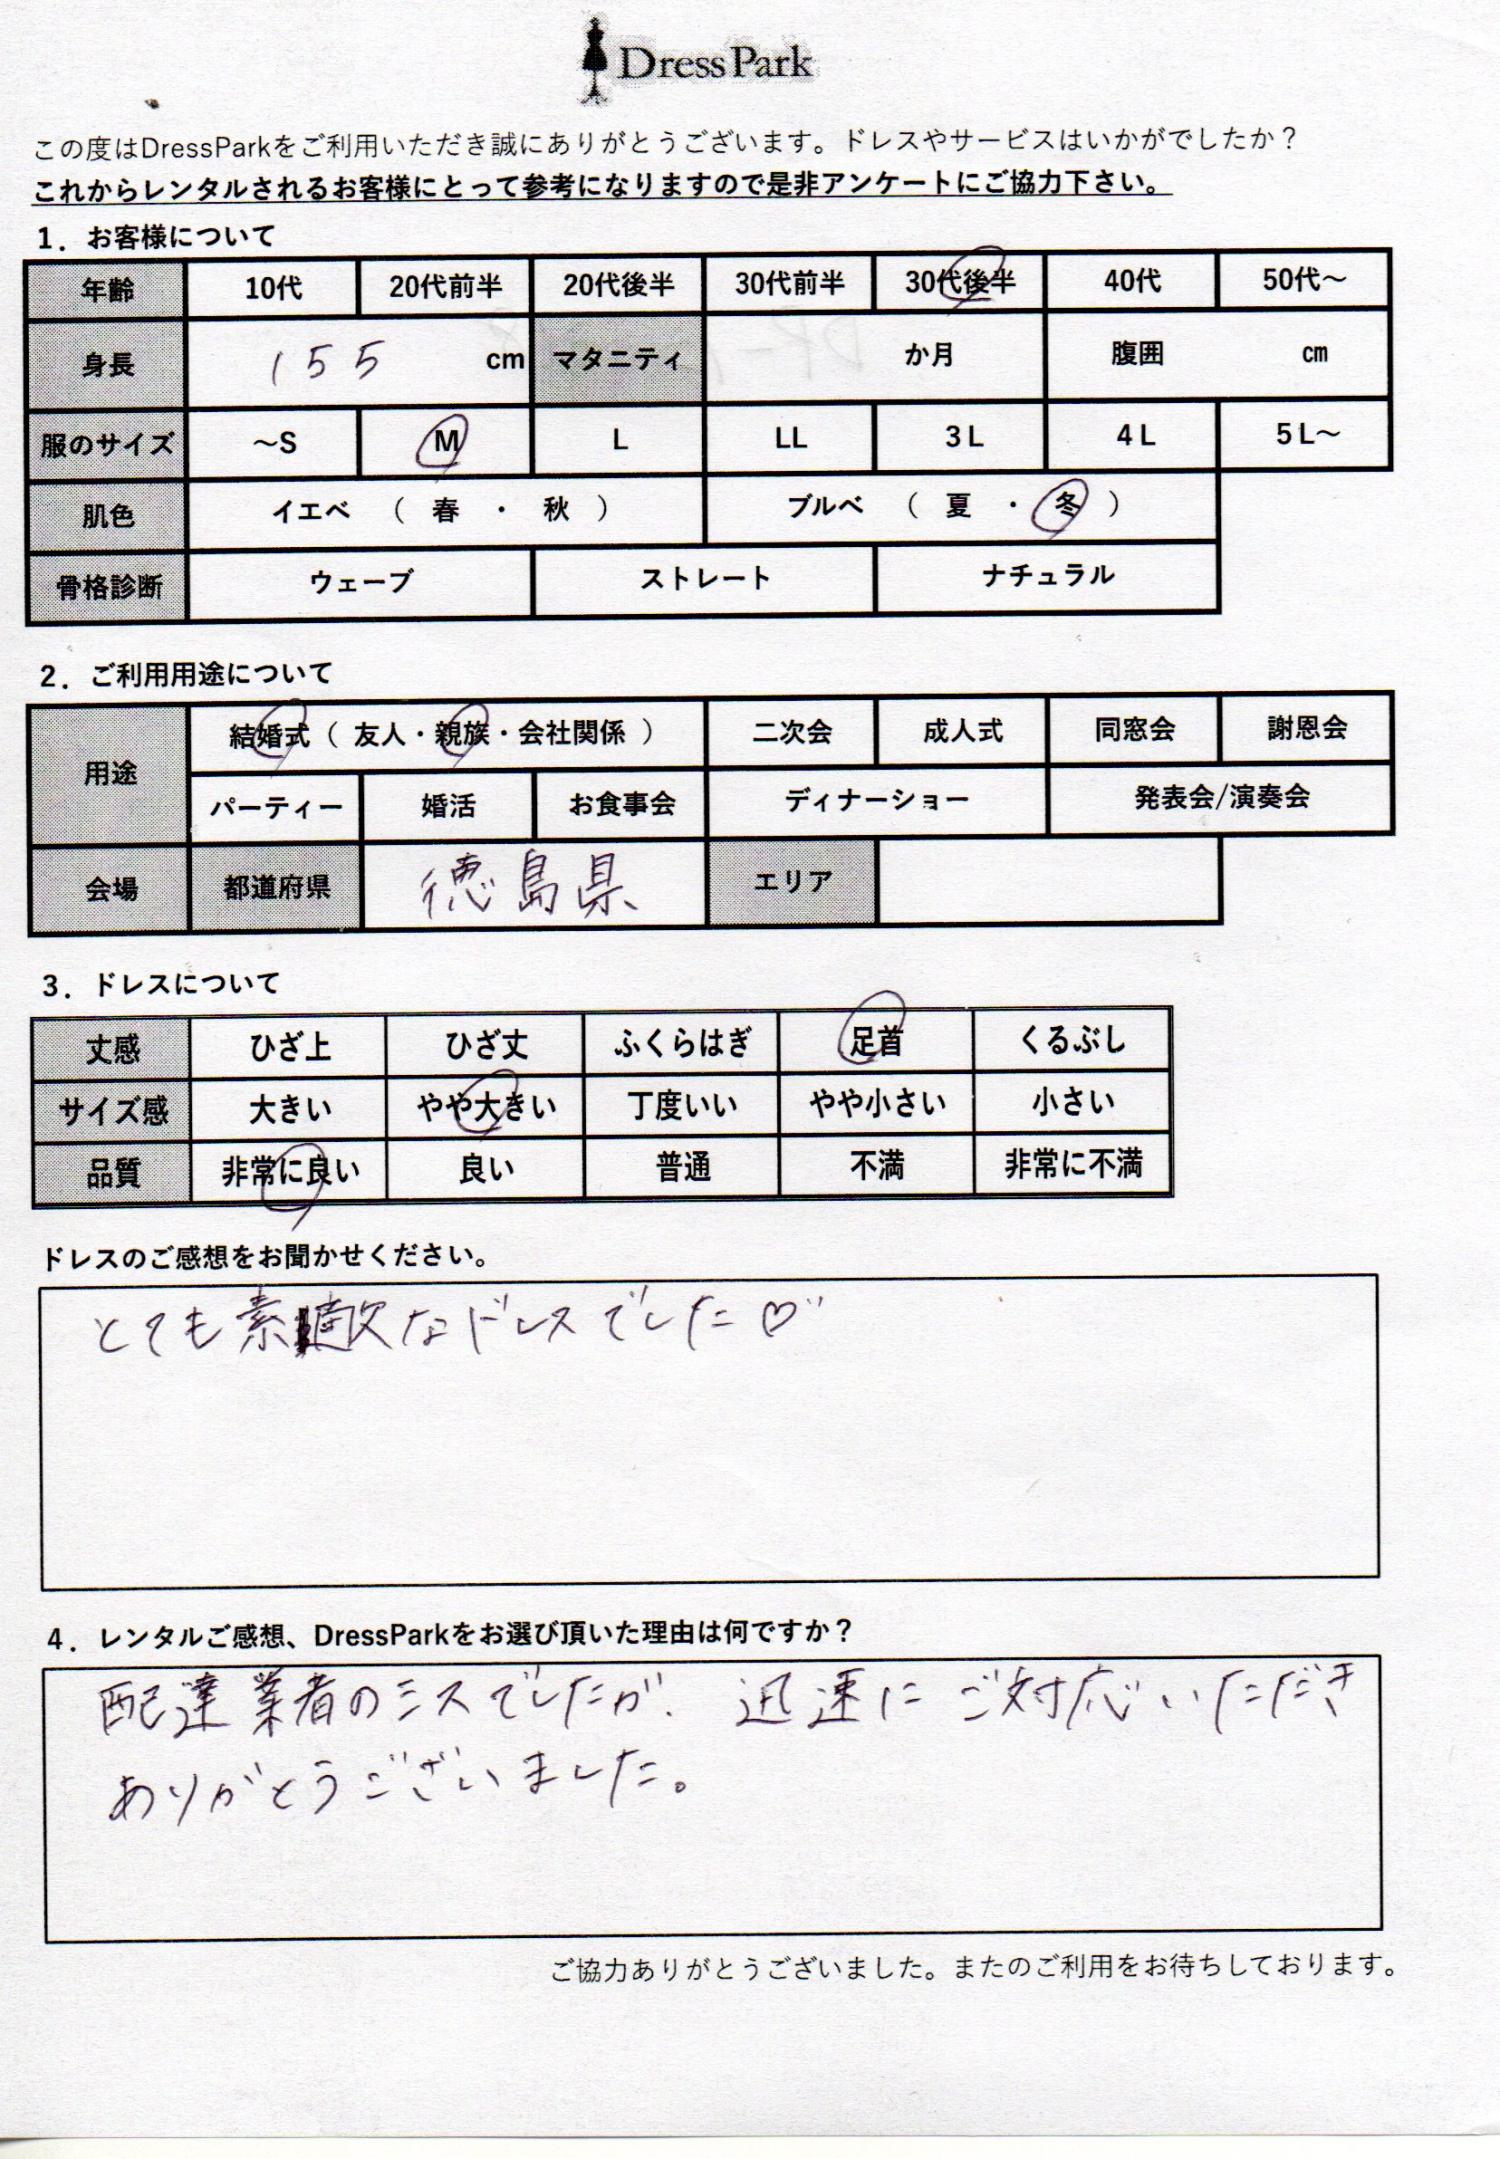 Dress Park
この度はDressParkをご利用いただき誠にありがとうございます。ドレスやサービスはいかがでしたか？
これからレンタルされるお客様にとって参考になりますので是非アンケートにご協力下さい。
1．お客様について
年齢 10代 20代前半 20代後半 30代前半 30代後半 40代 50代～
身長 155 cm マタニティ か月 腹囲 cm
服のサイズ ～S M L LL 3L 4L 5L～
肌色 イエベ （ 春 ・ 秋 ） ブルベ （ 夏 ・ 冬 ）
骨格診断 ウェーブ ストレート ナチュラル
2．ご利用用途について
用途 結婚式（ 友人・親族・会社関係 ） 二次会 成人式 同窓会 謝恩会
パーティー 婚活 お食事会 ディナーショー 発表会/演奏会
会場 都道府県 徳島県 エリア
3．ドレスについて
丈感 ひざ上 ひざ丈 ふくらはぎ 足首 くるぶし
サイズ感 大きい やや大きい 丁度いい やや小さい 小さい
品質 非常に良い 良い 普通 不満 非常に不満
ドレスのご感想をお聞かせください。
とても素敵なドレスでした♡
4．レンタルご感想、DressParkをお選び頂いた理由は何ですか？
配達業者のミスでしたが、迅速にご対応いただき
ありがとうございました。
ご協力ありがとうございました。またのご利用をお待ちしております。